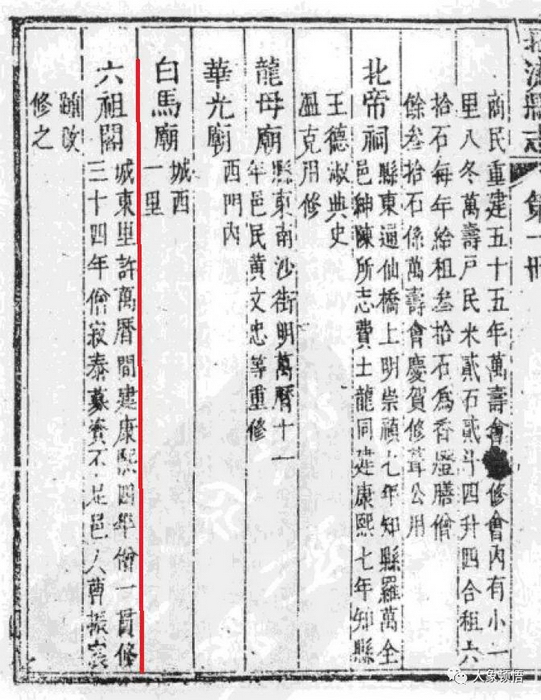 縣志 第一冊
商民重建五十五年萬壽會修會內有小一
里八冬萬壽戶民米貳石貳斗四升四合租六
拾石每年給租叁拾石為香燈膳僧
餘叁拾石係萬壽會慶賀修葺公用
北帝祠
縣東通仙橋上明崇禎七年知縣羅萬全
邑紳陳所志費土龍同建康熙七年知縣
王德淑典史
溫克用修
龍母廟
縣東南沙街明萬曆十一
年邑民黃文忠等重修
華光廟
西門內
白馬廟
城西
一里
六祖閣
城東里許萬曆間建康熙四年僧一貫修
三十四年僧寂泰募資不足邑人曹振
改
修之